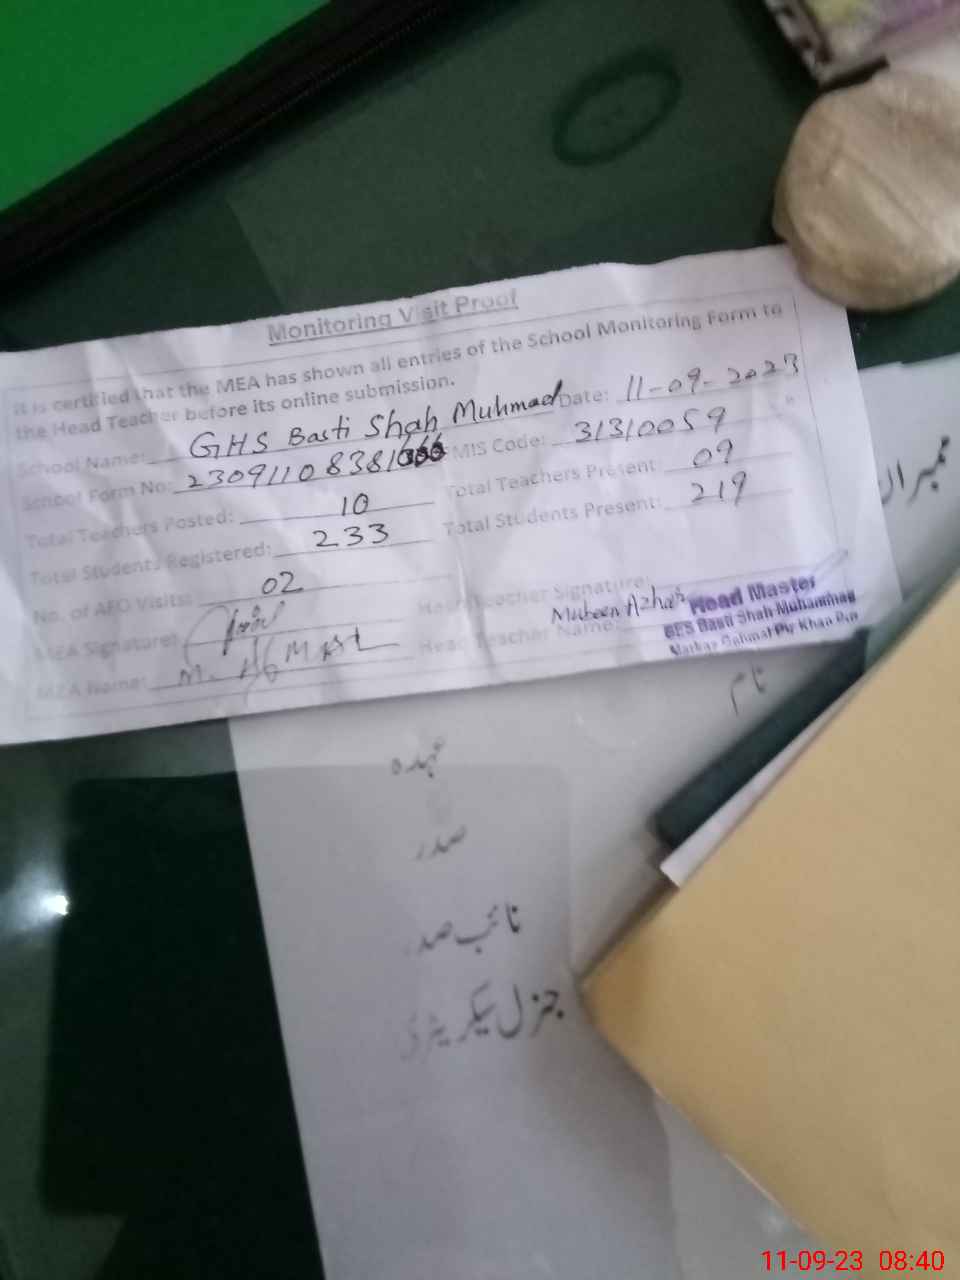 Monitoring Visit Proof
It is certified that the MEA has shown all entries of the School Monitoring Form to
the Head Teacher before its online submission.
School Name: GHS Basti Shah Muhmad Date: 11-09-2023
School Form No: 23091108381 EMIS Code: 31310059
Total Teachers Posted: 10 Total Teachers Present: 09
Total Students Registered: 233 Total Students Present: 219
No. of AEO Visits: 02
MEA Signature: Head Teacher Signature:
MEA Name: M. Head Teacher Name: Mubeen Azhar
Head Master
GES Basti Shah Muhammad
Markaz
ممبران
نام
عہدہ
صدر
نائب صدر
جنرل سیکریٹری
11-09-23 08:40